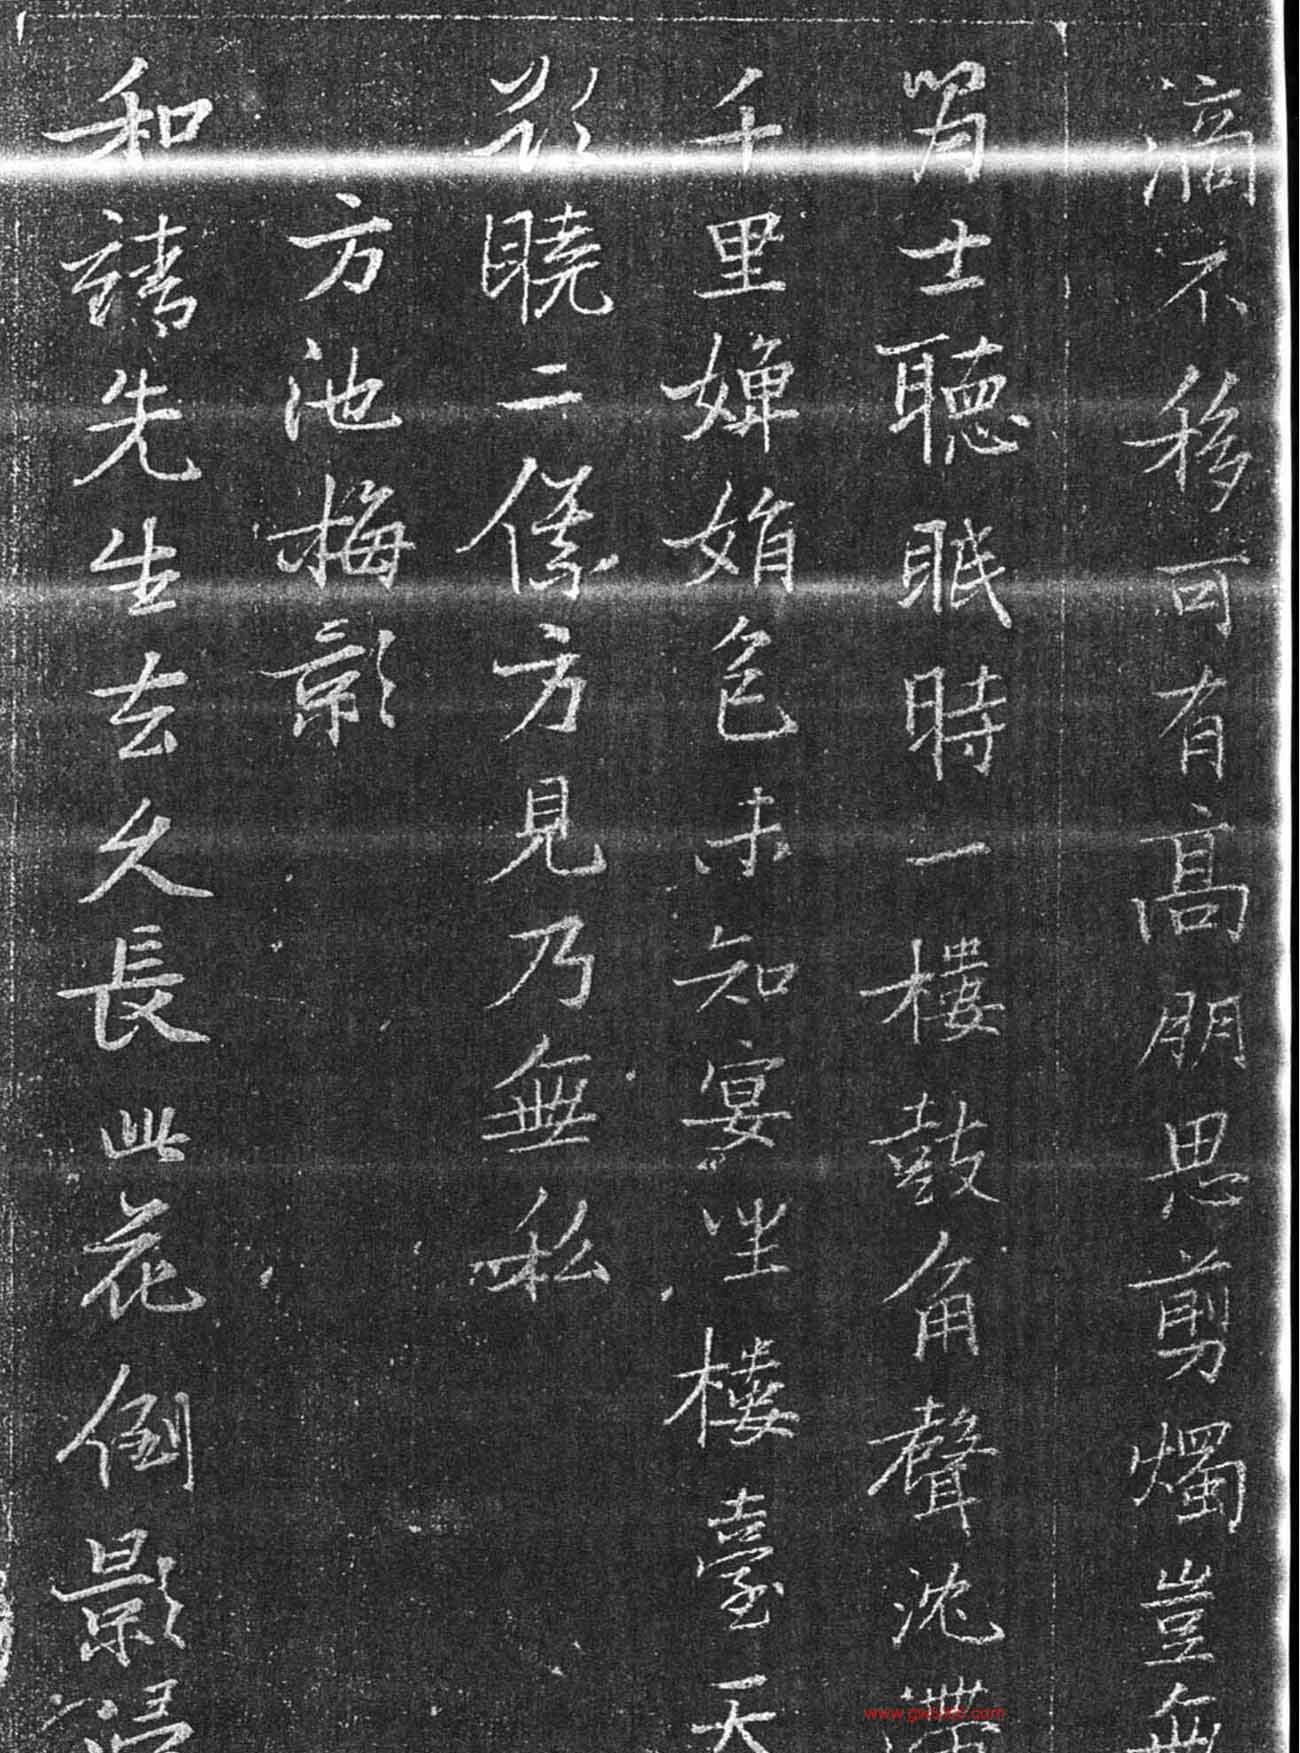 滴不移可有高朋思剪燭豈無
胃士聽眠時一樓鼓角聲沈
千里嬋娟色未知宴坐樓臺天
欲曉二儀方見乃無私
方池梅影
和靖先生去久長此花倒影清
www.gwssb.com